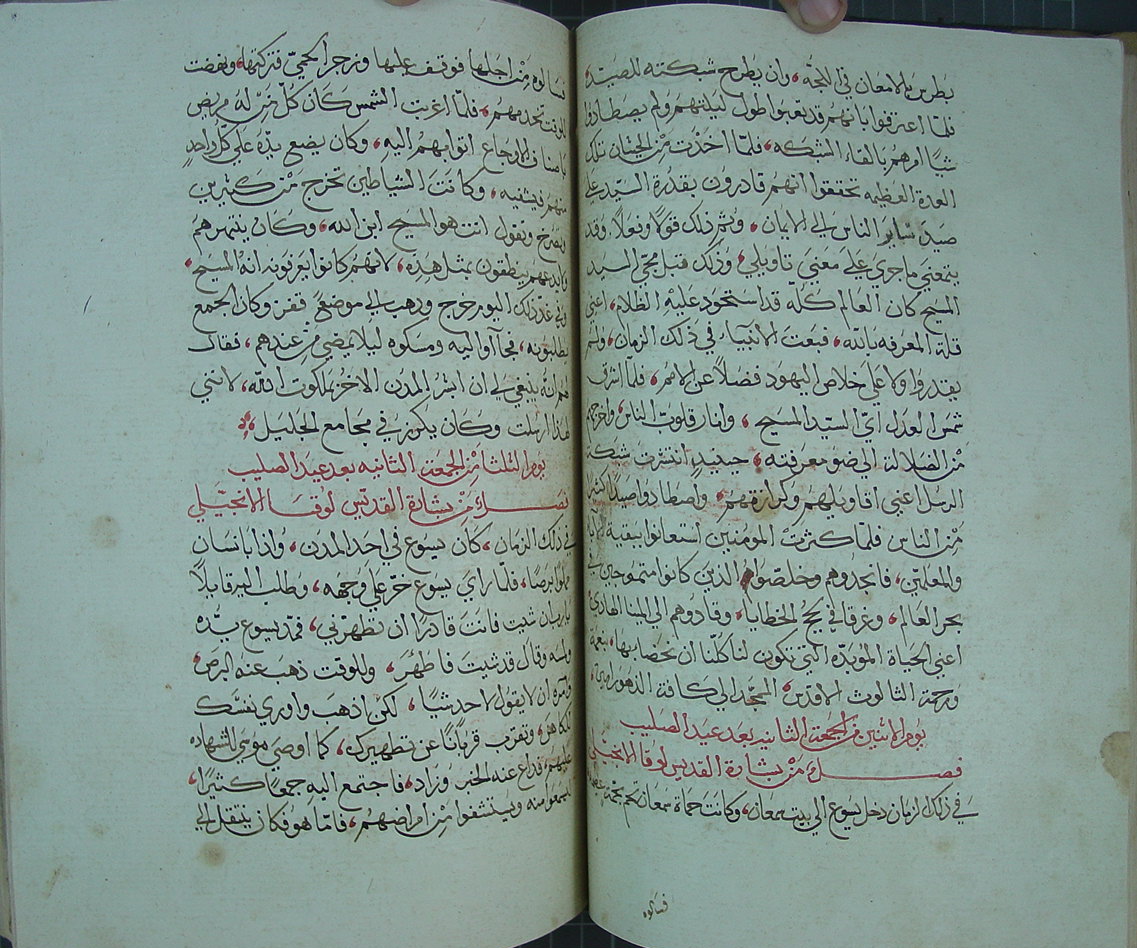 بطرس بالامعان في اللجة، وان يطرح شبكته للصيد،
فلما اعترفوا بانهم قد تعبوا طول ليلتهم ولم يصطادوا
شيا امرهم بالقاء الشبكه، فلما اخذت من الحيتان تلك
العدة العظيمه تحققوا انهم قادرون بقدرة السيد علي
صيد ساير الناس الى الايمان، وثم ذلك قولا وفعلا، وقد
ينبغي ماجري علي معني تاويلي، وذلك قبل مجي السيد
المسيح كان العالم كله قد استحود عليه الظلام، اعني
قلة المعرفه بالله، فبعت الانبياء في ذلك الزمان، ولم
يقدروا ولا علي خلاص اليهود فضلا عن الامم، فلما اشرف
شمس العدل اي السيد المسيح، وانار قلوب الناس، واخرجهم
من الضلاله الى ضو معرفته، حينيد انتشرت شبكة
الرسل اعني اقاويلهم وكرازتهم، واصطادوا صيدا كثيرا
من الناس فلما كثرت المومنين استعانوا ببقية الابا
والمعلمين، فانجدوهم وخلصوا الذين كانوا متموجين في
بحر العالم، وغرقا في لجج الخطايا، وقادوهم الي المينا الهادي
اعني الحياة الموبده التي تكون لنا كلنا ان نحضا بها، بنعمة
ورحمة الثالوث الاقدس، الممجد الي كافة الدهور امين،
يوم الاثنين من الجمعة الثانيه بعد عيد الصليب
فصل من بشارة القديس لوقا الانجيلي
في ذلك الزمان دخل يسوع الي بيت سمعان، وكانت حماة سمعان بحمى
فسالوه
فسالوه من اجلها فوقف عليها وزجر الحمي فتركتها، ونهضت
للوقت تخدمهم، فلما اغربت الشمس كان كل من له مريض
باصناف الاوجاع اتوا بهم اليه، وكان يضع يده علي كل واحد
منهم فيشفيه، وكانت الشياطين تخرج من كثيرين
وتصرخ وتقول انت هو المسيح ابن الله، وكان ينتهرهم
ولا يدعهم ينطقون بمثل هذه، لانهم كانوا يعرفونه انه المسيح،
وفي غد ذلك اليوم خرج وذهب الي موضع قفر وكان الجمع
يطلبونه، فجاآوا اليه ومسكوه ليلا يمضي من عندهم، فقال
لهم انه ينبغي لي ان ابشر المدن الاخر بملكوت الله، لانني
لهذا ارسلت وكان يكرز في مجامع الجليل،
يوم الثلثا من الجمعة الثانيه بعد عيد الصليب
فصل من بشارة القديس لوقا الانجيلي
في ذلك الزمان، كان يسوع في احد المدن، واذا بانسان
مملوا برصا، فلما راي يسوع خر علي وجهه، وطلب اليه قايلا
يارب ان شيت فانت قادرا ان تطهرني، فمد يسوع يده
ولمسه وقال قد شيت فاطهر، وللوقت ذهب عنه البرص،
وامره ان لا يقول لاحد شيا، لكن اذهب واوري نفسك
للكاهن، وتقرب قربانا عن تطهيرك، كما اوصي موسي للشهاده
عليهم فذاع عنه الخبر وزاد، فاجتمع اليه جمعا كثيرا،
ليسمعوا منه ويستشفوا من امراضهم، فاما هو فكان ينتقل الي